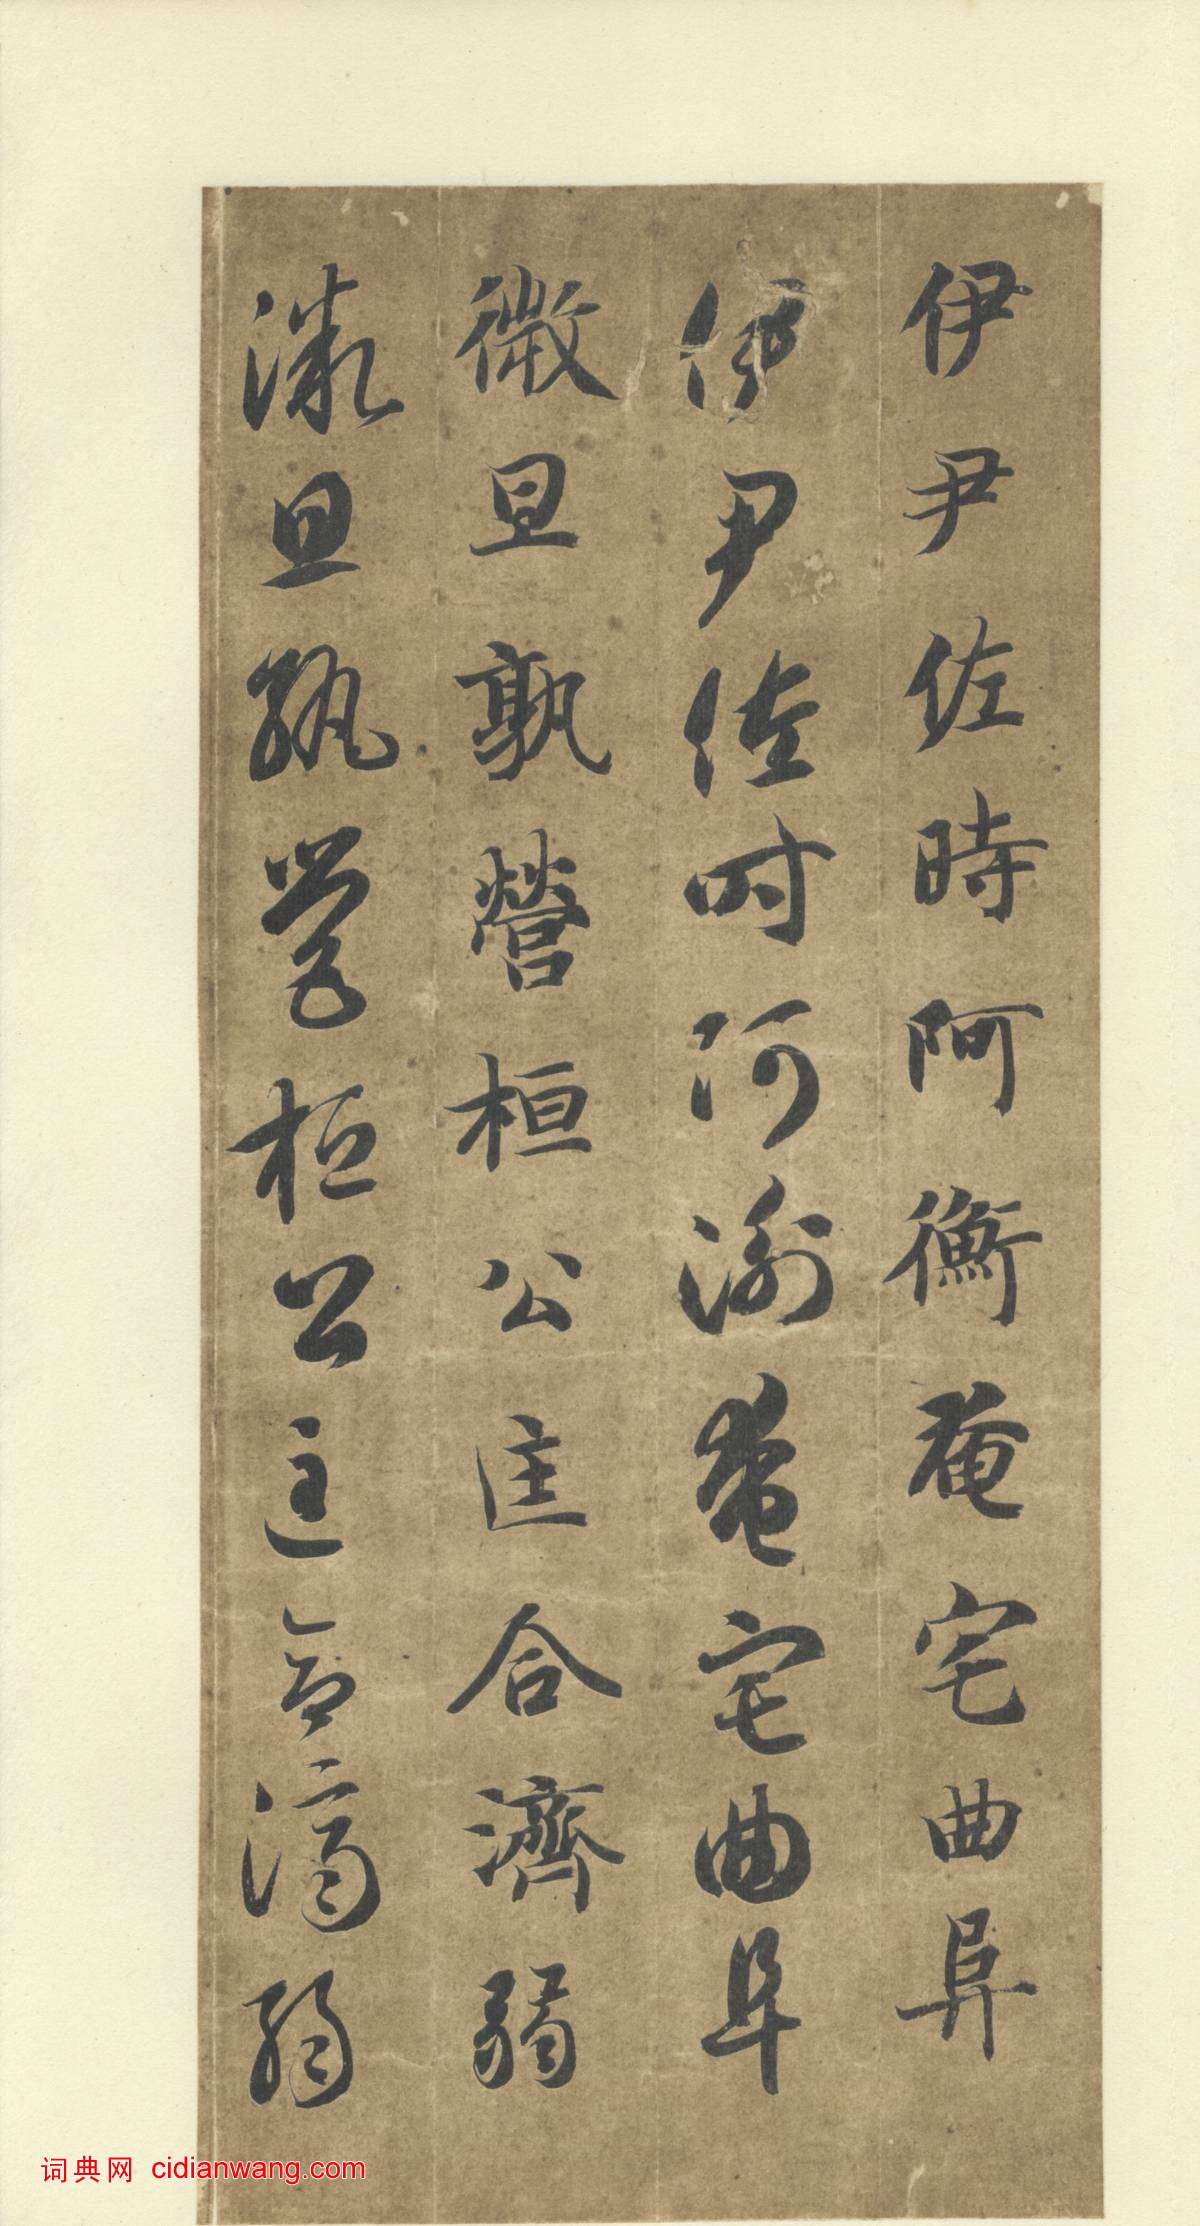 伊尹佐時阿衡奄宅曲阜
伊尹佐时阿衡奄宅曲阜
微旦孰營桓公匡合濟弱
微旦孰營桓公匡合濟弱
词典网 cidianwang.com